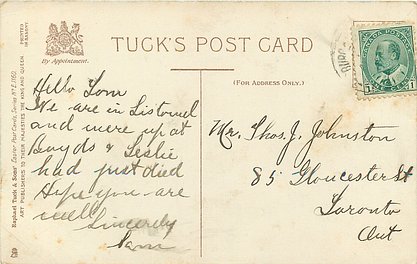 TUCK'S POST CARD
By Appointment.
(FOR ADDRESS ONLY.)
CANADA POSTAGE
1
Raphael Tuck & Sons'
ART PUBLISHERS TO THEIR MAJESTIES THE KING AND QUEEN
PRINTED
IN SAXONY.
Hello Tom
We are in Listowel
and were up at
Boyds & Leslie
had just died
Hope you are
well
Sincerely
Sam
Mr. Thos. J. Johnston
85 Gloucester St
Toronto
Ont